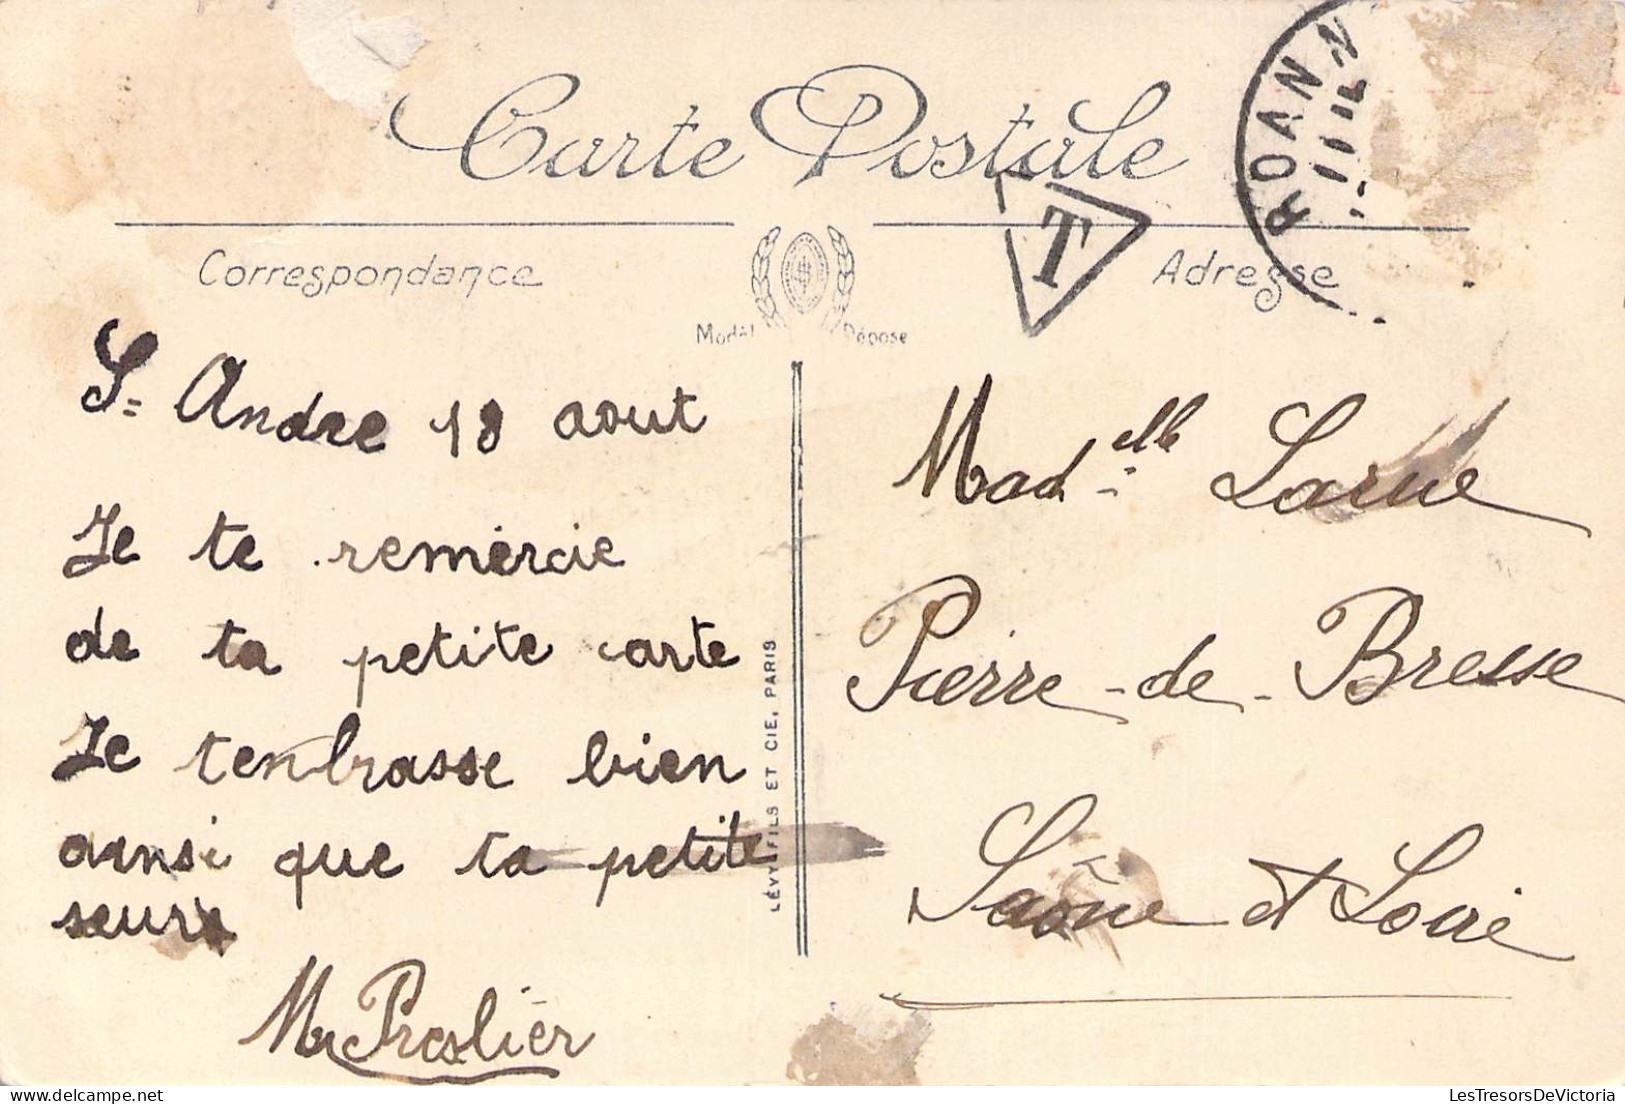 Carte Postale
ROANN
T
Correspondance
Adresse
Modèl Dépose
S= Andre 18 aout
Je te remercie
de ta petite carte
Je tenbrasse bien
ainsi que ta petite
seur
M Preslier
LÉVY FILS ET CIE, PARIS
Mad.elle Larue
Pierre-de-Bresse
Saône et Loire
LesTresorsDeVictoria